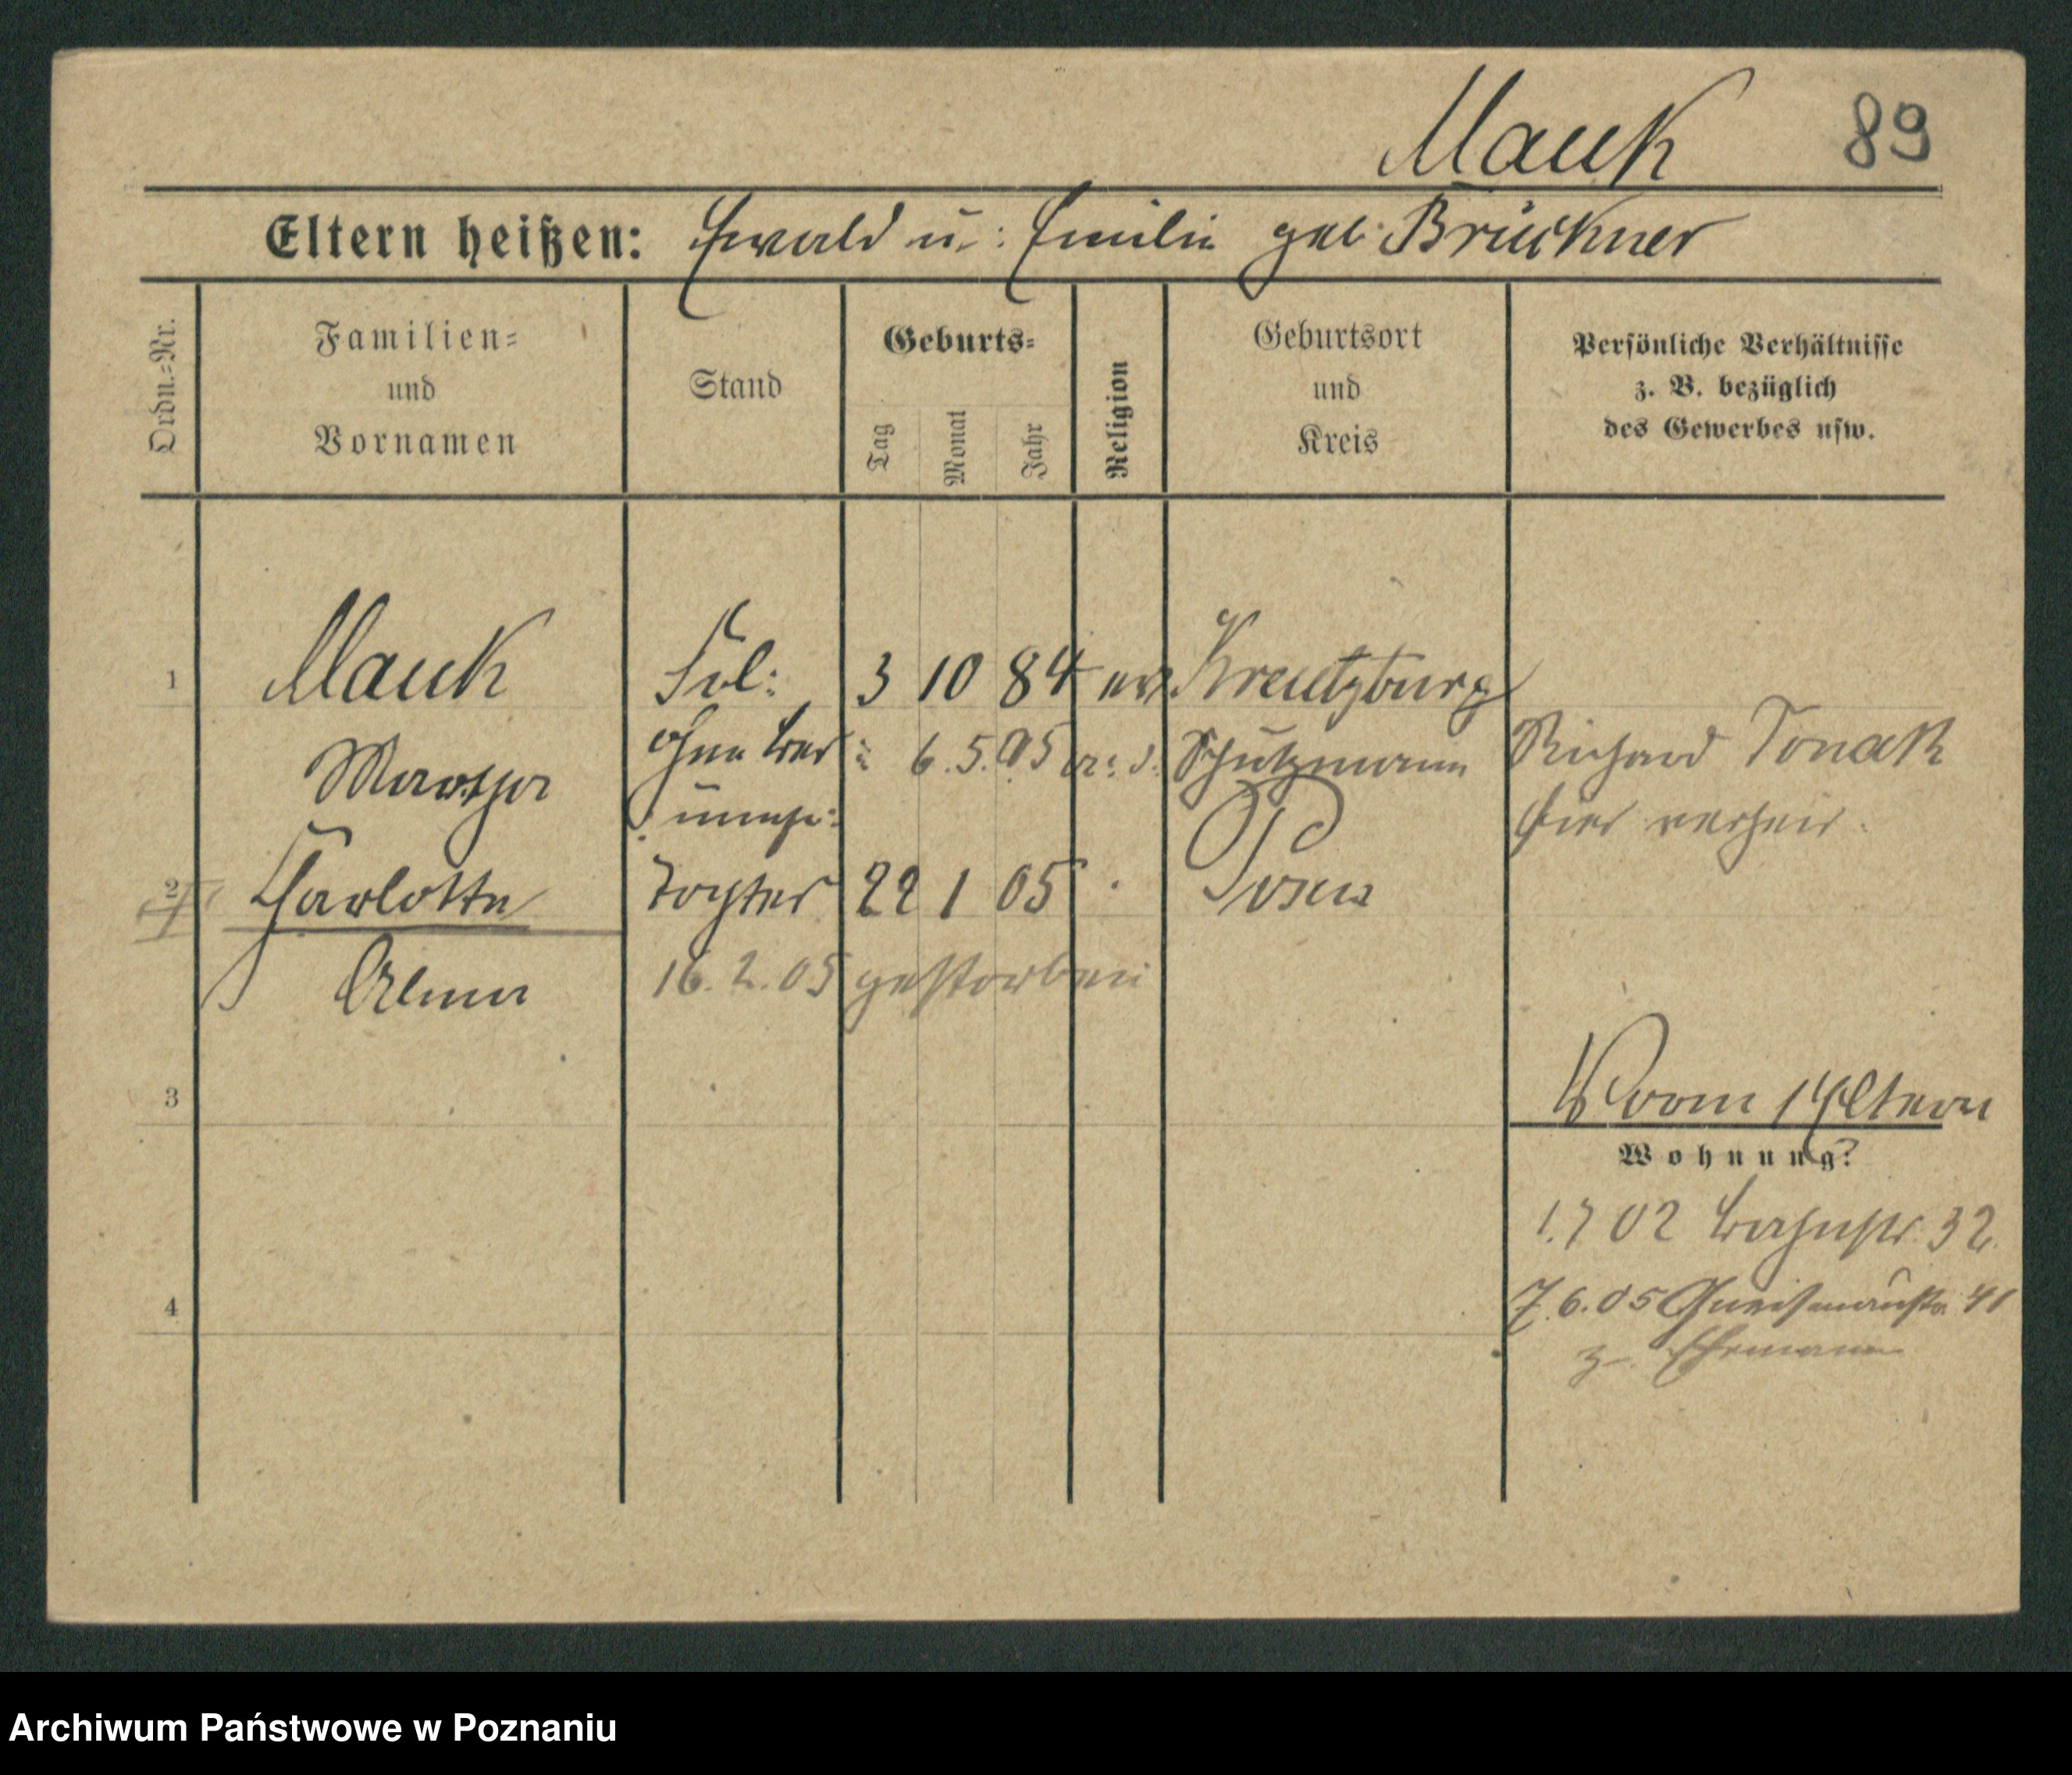 Mauk 89
Eltern heißen: Ewald u: Emilie geb: Brückner
Ordn.-Nr.
Familien-
und
Vornamen
Stand
Geburts-
Tag
Monat
Jahr
Religion
Geburtsort
und
Kreis
Persönliche Verhältnisse
z. B. bezüglich
des Gewerbes usw.
1 Mauk 3 10 84 ev. Kreutzburg
Martha ohne 6.5.05 Schutzmann Richard Tonak
hier verheir.
2 Charlotte Tochter 22 1 05 Posen
Alma 16.2.05 gestorben
3
Eltern
Wohnung?
1.7 02 Bahnstr. 32.
7.6.05 Gneisenaustr. 41
z. Ehemann
4
Archiwum Państwowe w Poznaniu